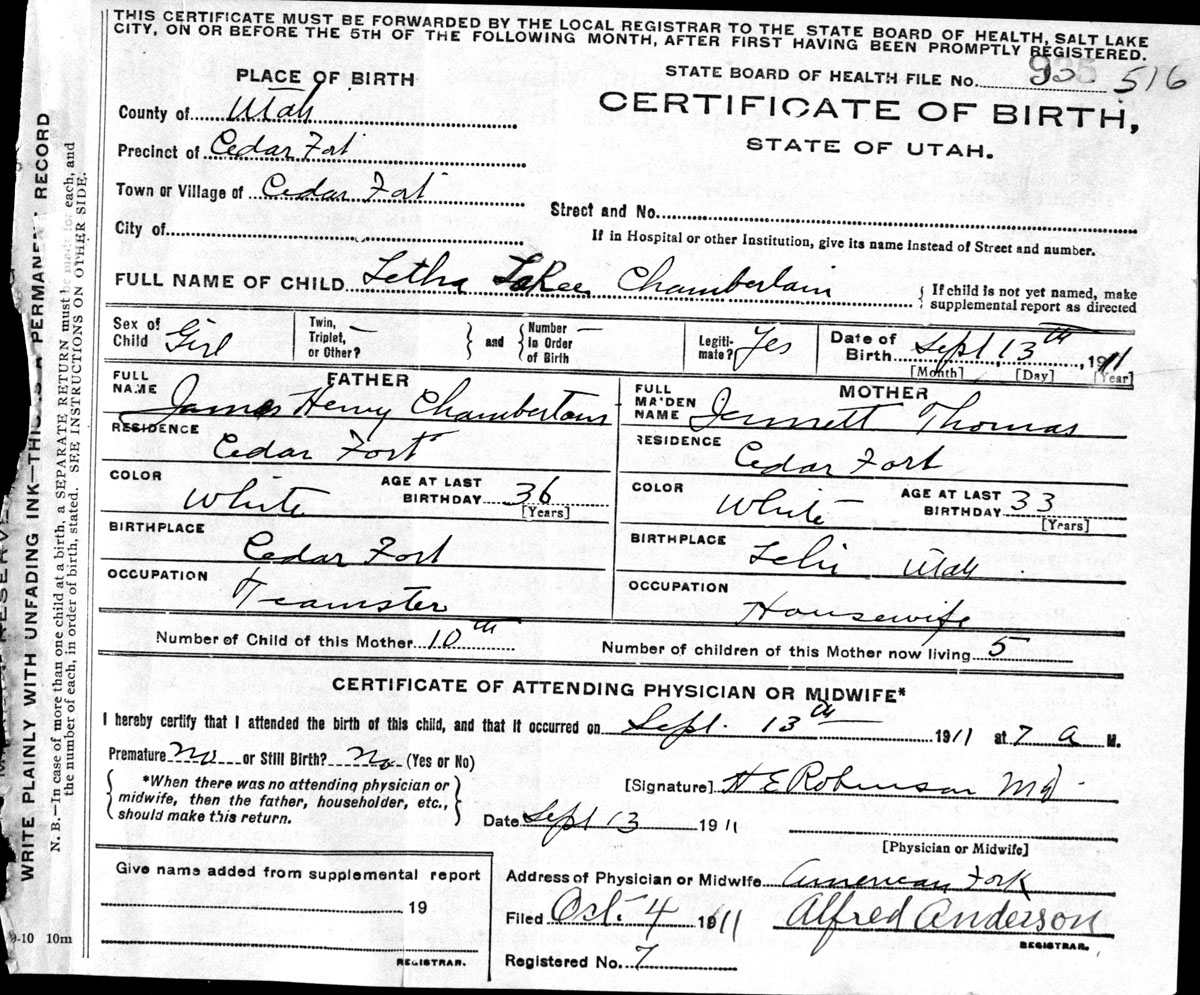 THIS CERTIFICATE MUST BE FORWARDED BY THE LOCAL REGISTRAR TO THE STATE BOARD OF HEALTH, SALT LAKE
CITY, ON OR BEFORE THE 5TH OF THE FOLLOWING MONTH, AFTER FIRST HAVING BEEN PROMPTLY REGISTERED.
STATE BOARD OF HEALTH FILE No. 935 516
PLACE OF BIRTH
CERTIFICATE OF BIRTH,
STATE OF UTAH.
County of Utah
Precinct of Cedar Fort
Town or Village of Cedar Fort
Street and No.
City of
If in Hospital or other Institution, give its name instead of Street and number.
FULL NAME OF CHILD Letha LaRee Chamberlain
{ If child is not yet named, make
supplemental report as directed
Sex of Child Girl
Twin, Triplet, or Other? —
} and { Number In Order of Birth —
Legiti-mate? Yes
Date of Birth Sept 13th, 1911
[Month] [Day] [Year]
FATHER
FULL NAME James Henry Chamberlain
RESIDENCE Cedar Fort
COLOR White AGE AT LAST BIRTHDAY 36 [Years]
BIRTHPLACE Cedar Fort
OCCUPATION Teamster
MOTHER
FULL MAIDEN NAME Jennett Thomas
RESIDENCE Cedar Fort
COLOR White AGE AT LAST BIRTHDAY 33 [Years]
BIRTHPLACE Lehi Utah
OCCUPATION Housewife
Number of Child of this Mother 10th Number of children of this Mother now living 5
CERTIFICATE OF ATTENDING PHYSICIAN OR MIDWIFE*
I hereby certify that I attended the birth of this child, and that it occurred on Sept. 13th 1911 at 7 a M.
Premature No or Still Birth? No (Yes or No)
{ *When there was no attending physician or
midwife, then the father, householder, etc.,
should make this return. }
[Signature] H E Robinson MD
Date Sept 13 1911
[Physician or Midwife]
Give name added from supplemental report
19
REGISTRAR.
Address of Physician or Midwife American Fork
Filed Oct. 4 1911 Alfred Anderson
REGISTRAR.
Registered No. 7
9-10 10m
WRITE PLAINLY WITH UNFADING INK—THIS IS A PERMANENT RECORD
N. B.—In case of more than one child at a birth, a SEPARATE RETURN must be made for each, and
the number of each, in order of birth, stated. SEE INSTRUCTIONS ON OTHER SIDE.